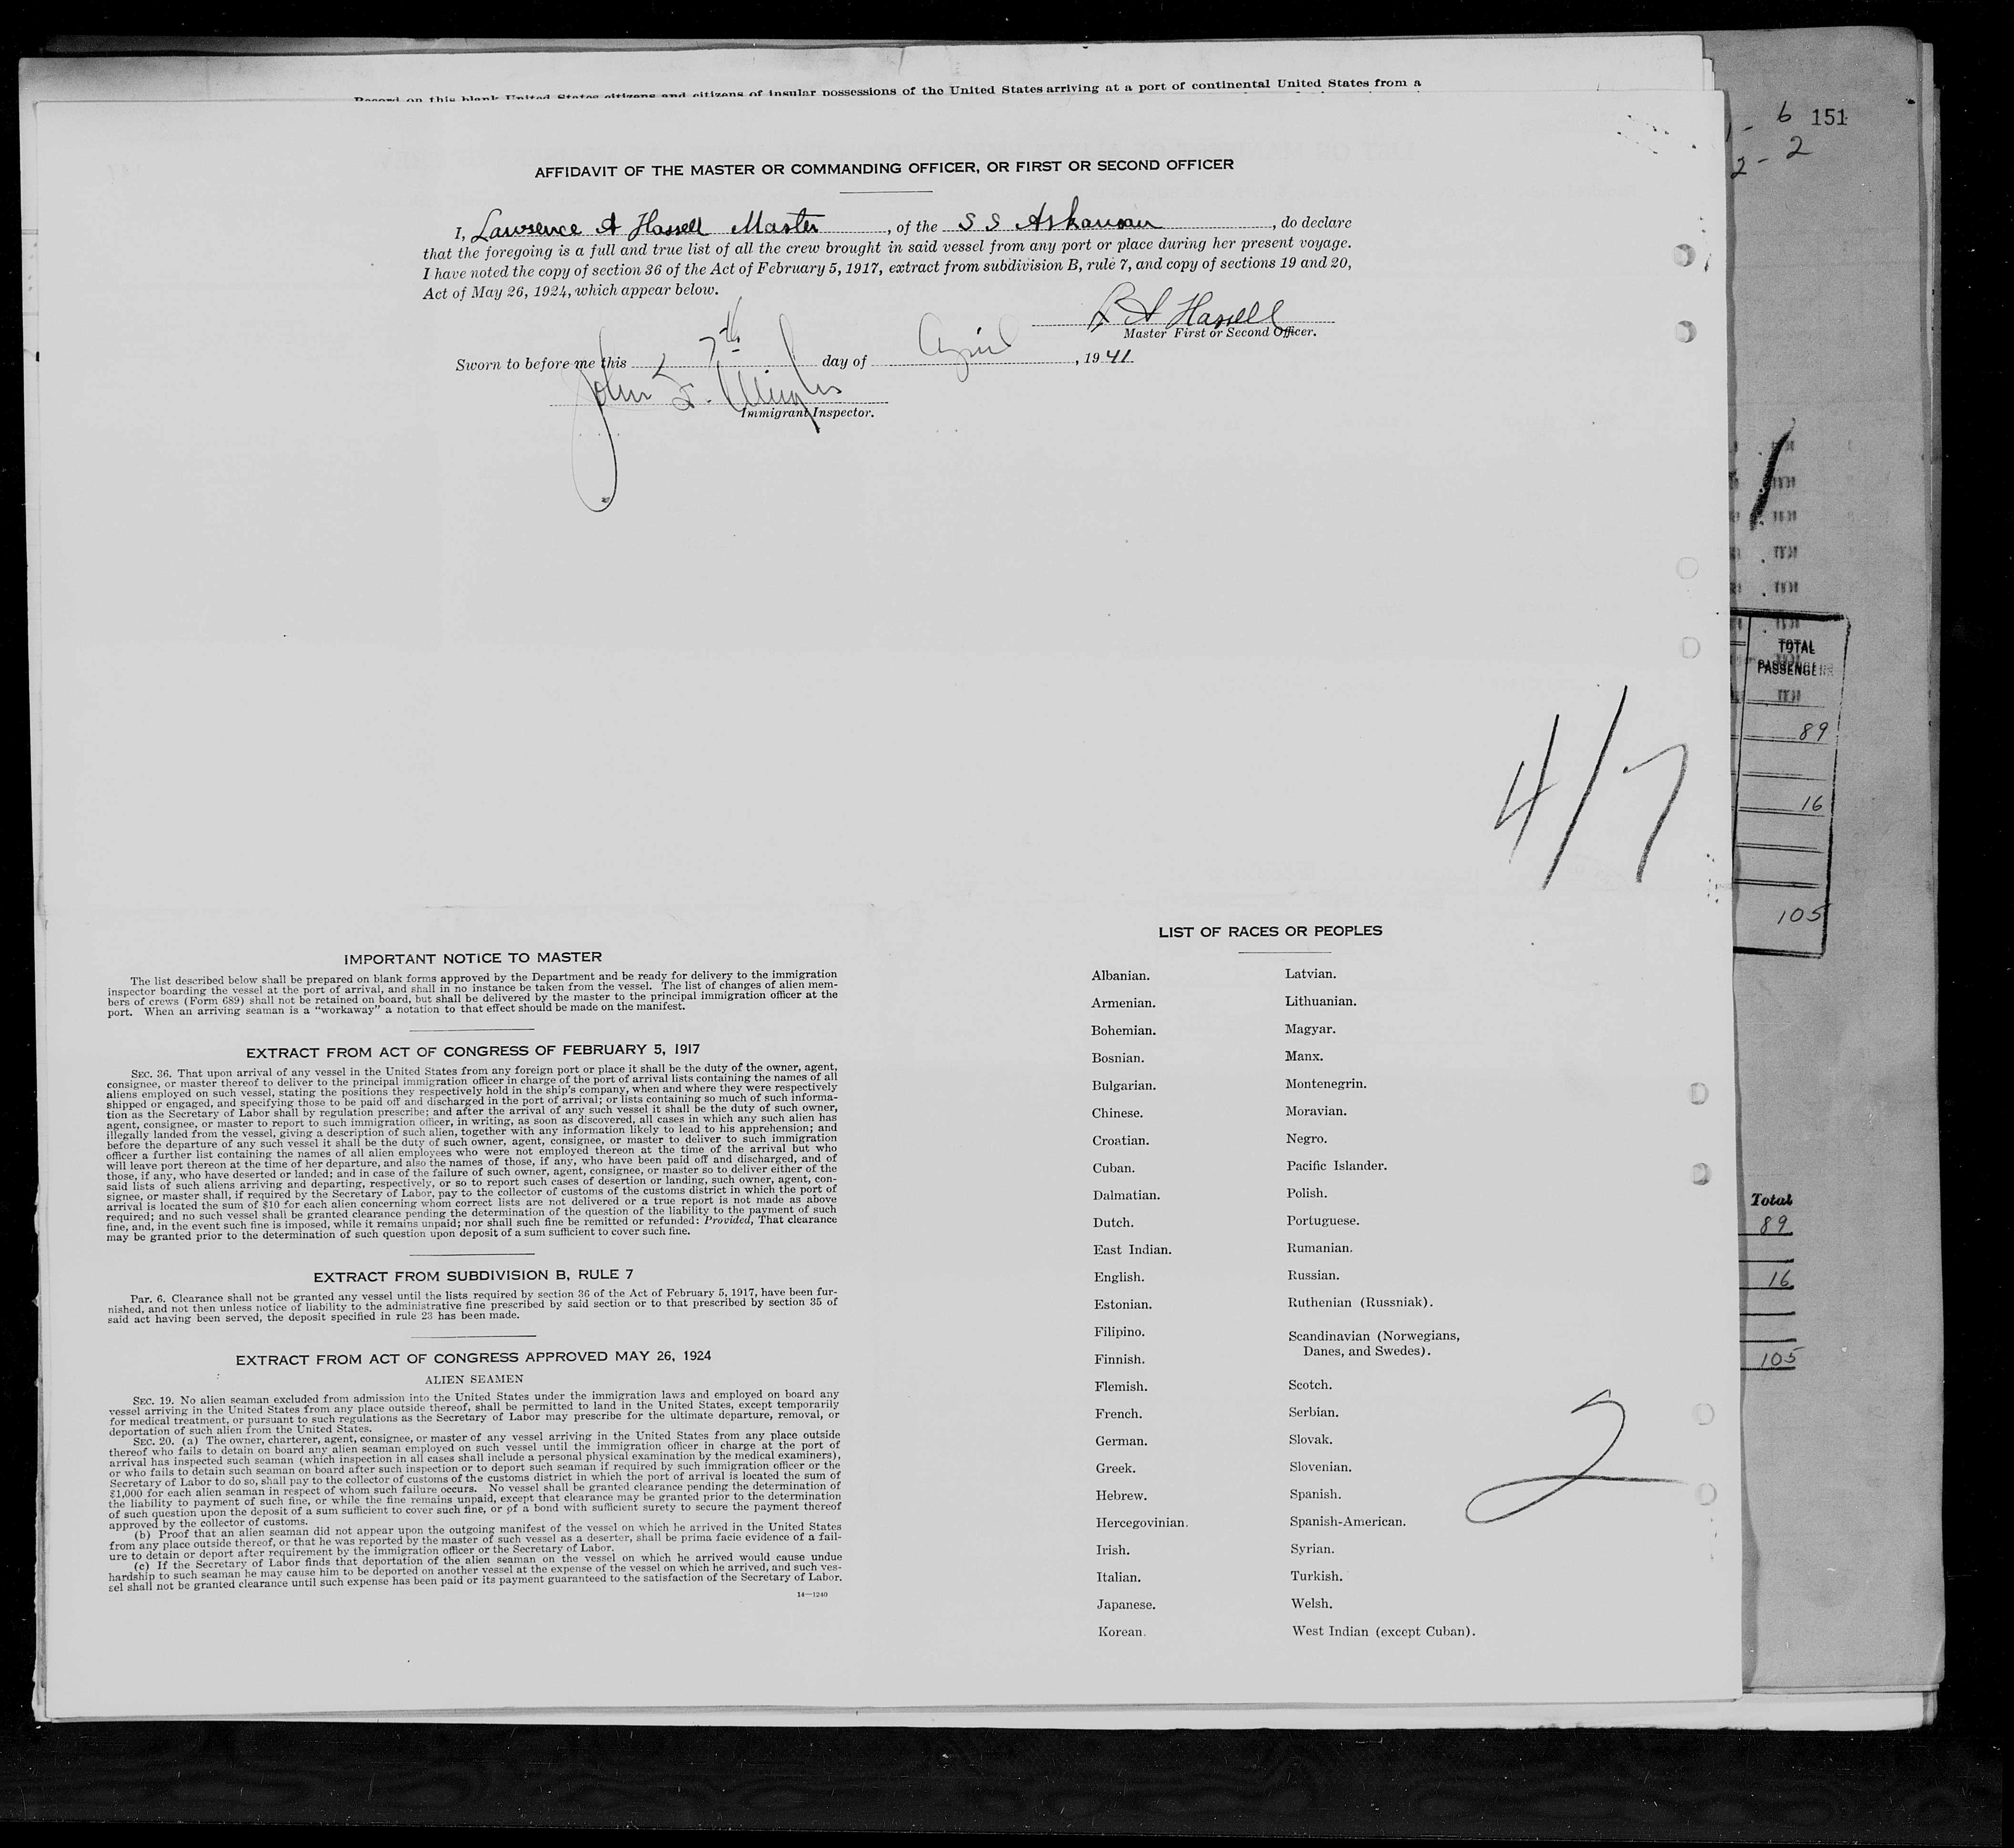 Record on this blank United States citizens and citizens of insular possessions of the United States arriving at a port of continental United States from a
6 151
2 - 2
AFFIDAVIT OF THE MASTER OR COMMANDING OFFICER, OR FIRST OR SECOND OFFICER
I, Lawrence A Hassell Master, of the S S Arkansan, do declare
that the foregoing is a full and true list of all the crew brought in said vessel from any port or place during her present voyage.
I have noted the copy of section 36 of the Act of February 5, 1917, extract from subdivision B, rule 7, and copy of sections 19 and 20,
Act of May 26, 1924, which appear below.
L A Hassell
Master First or Second Officer.
Sworn to before me this 7th day of April, 1941
John
Immigrant Inspector.
TOTAL
PASSENGERS
89
16
105
4/7
IMPORTANT NOTICE TO MASTER
The list described below shall be prepared on blank forms approved by the Department and be ready for delivery to the immigration
inspector boarding the vessel at the port of arrival, and shall in no instance be taken from the vessel. The list of changes of alien mem-
bers of crews (Form 689) shall not be retained on board, but shall be delivered by the master to the principal immigration officer at the
port. When an arriving seaman is a “workaway” a notation to that effect should be made on the manifest.
EXTRACT FROM ACT OF CONGRESS OF FEBRUARY 5, 1917
SEC. 36. That upon arrival of any vessel in the United States from any foreign port or place it shall be the duty of the owner, agent,
consignee, or master thereof to deliver to the principal immigration officer in charge of the port of arrival lists containing the names of all
aliens employed on such vessel, stating the positions they respectively hold in the ship's company, when and where they were respectively
shipped or engaged, and specifying those to be paid off and discharged in the port of arrival; or lists containing so much of such informa-
tion as the Secretary of Labor shall by regulation prescribe; and after the arrival of any such vessel it shall be the duty of such owner,
agent, consignee, or master to report to such immigration officer, in writing, as soon as discovered, all cases in which any such alien has
illegally landed from the vessel, giving a description of such alien, together with any information likely to lead to his apprehension; and
before the departure of any such vessel it shall be the duty of such owner, agent, consignee, or master to deliver to such immigration
officer a further list containing the names of all alien employees who were not employed thereon at the time of the arrival but who
will leave port thereon at the time of her departure, and also the names of those, if any, who have been paid off and discharged, and of
those, if any, who have deserted or landed; and in case of the failure of such owner, agent, consignee, or master so to deliver either of the
said lists of such aliens arriving and departing, respectively, or so to report such cases of desertion or landing, such owner, agent, con-
signee, or master shall, if required by the Secretary of Labor, pay to the collector of customs of the customs district in which the port of
arrival is located the sum of $10 for each alien concerning whom correct lists are not delivered or a true report is not made as above
required; and no such vessel shall be granted clearance pending the determination of the question of the liability to the payment of such
fine, and, in the event such fine is imposed, while it remains unpaid; nor shall such fine be remitted or refunded: Provided, That clearance
may be granted prior to the determination of such question upon deposit of a sum sufficient to cover such fine.
EXTRACT FROM SUBDIVISION B, RULE 7
Par. 6. Clearance shall not be granted any vessel until the lists required by section 36 of the Act of February 5, 1917, have been fur-
nished, and not then unless notice of liability to the administrative fine prescribed by said section or to that prescribed by section 35 of
said act having been served, the deposit specified in rule 23 has been made.
EXTRACT FROM ACT OF CONGRESS APPROVED MAY 26, 1924
ALIEN SEAMEN
SEC. 19. No alien seaman excluded from admission into the United States under the immigration laws and employed on board any
vessel arriving in the United States from any place outside thereof, shall be permitted to land in the United States, except temporarily
for medical treatment, or pursuant to such regulations as the Secretary of Labor may prescribe for the ultimate departure, removal, or
deportation of such alien from the United States.
SEC. 20. (a) The owner, charterer, agent, consignee, or master of any vessel arriving in the United States from any place outside
thereof who fails to detain on board any alien seaman employed on such vessel until the immigration officer in charge at the port of
arrival has inspected such seaman (which inspection in all cases shall include a personal physical examination by the medical examiners),
or who fails to detain such seaman on board after such inspection or to deport such seaman if required by such immigration officer or the
Secretary of Labor to do so, shall pay to the collector of customs of the customs district in which the port of arrival is located the sum of
$1,000 for each alien seaman in respect of whom such failure occurs. No vessel shall be granted clearance pending the determination of
the liability to payment of such fine, or while the fine remains unpaid, except that clearance may be granted prior to the determination
of such question upon the deposit of a sum sufficient to cover such fine, or of a bond with sufficient surety to secure the payment thereof
approved by the collector of customs.
(b) Proof that an alien seaman did not appear upon the outgoing manifest of the vessel on which he arrived in the United States
from any place outside thereof, or that he was reported by the master of such vessel as a deserter, shall be prima facie evidence of a fail-
ure to detain or deport after requirement by the immigration officer or the Secretary of Labor.
(c) If the Secretary of Labor finds that deportation of the alien seaman on the vessel on which he arrived would cause undue
hardship to such seaman he may cause him to be deported on another vessel at the expense of the vessel on which he arrived, and such ves-
sel shall not be granted clearance until such expense has been paid or its payment guaranteed to the satisfaction of the Secretary of Labor.
14—1240
LIST OF RACES OR PEOPLES
Albanian.
Armenian.
Bohemian.
Bosnian.
Bulgarian.
Chinese.
Croatian.
Cuban.
Dalmatian.
Dutch.
East Indian.
English.
Estonian.
Filipino.
Finnish.
Flemish.
French.
German.
Greek.
Hebrew.
Hercegovinian.
Irish.
Italian.
Japanese.
Korean.
Latvian.
Lithuanian.
Magyar.
Manx.
Montenegrin.
Moravian.
Negro.
Pacific Islander.
Polish.
Portuguese.
Rumanian.
Russian.
Ruthenian (Russniak).
Scandinavian (Norwegians,
Danes, and Swedes).
Scotch.
Serbian.
Slovak.
Slovenian.
Spanish.
Spanish-American.
Syrian.
Turkish.
Welsh.
West Indian (except Cuban).
2
Total
89
16
105